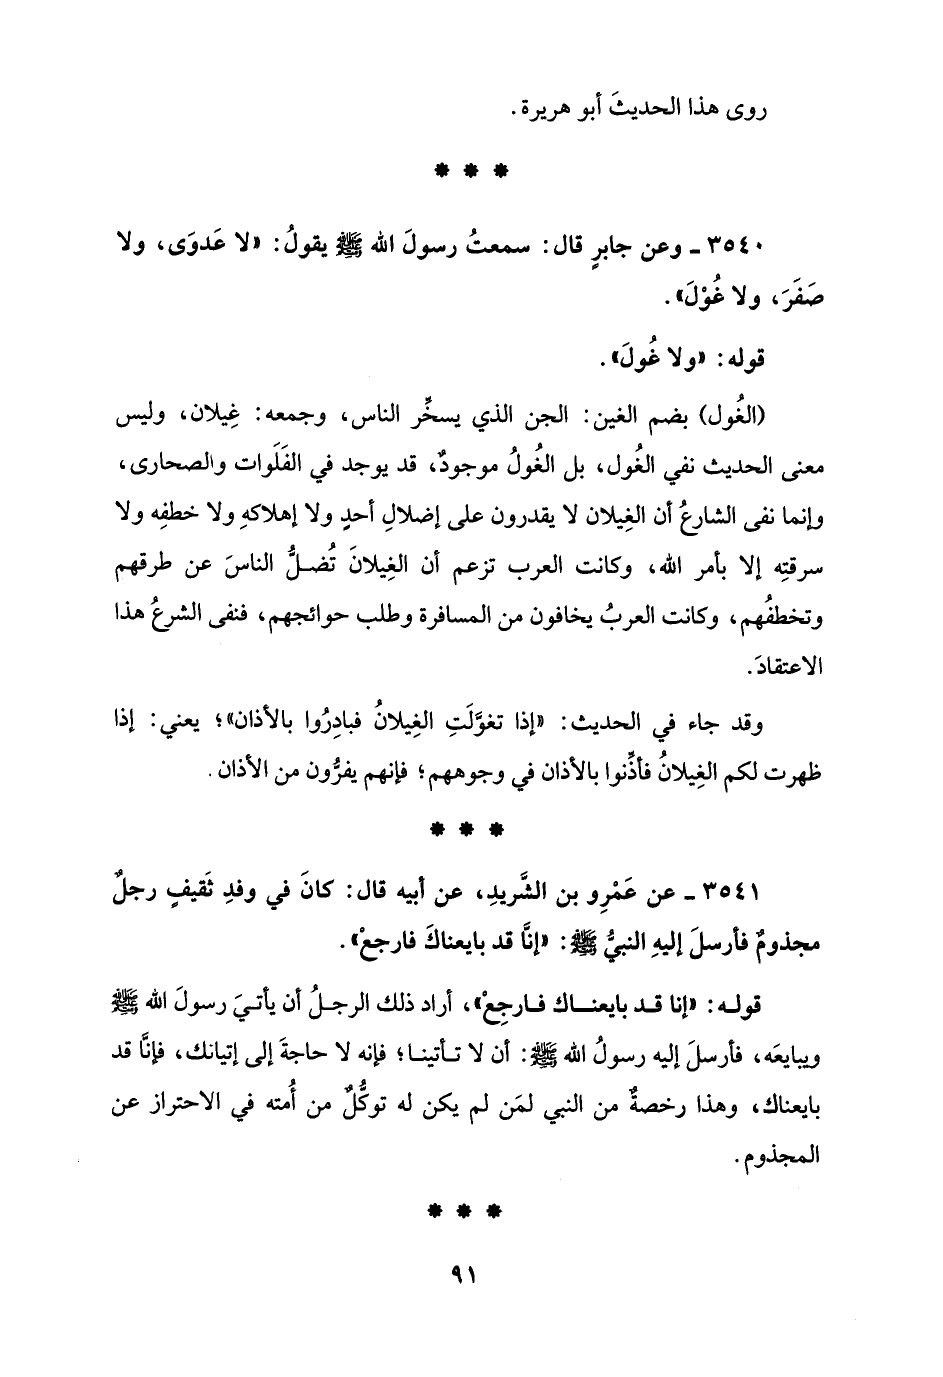 روى هذا الحديثَ أبو هريرة.
* * *
٣٥٤٠ ـ وعن جابرٍ قال: سمعتُ رسولَ الله ﷺ يقولُ: «لا عَدوَى، ولا
صَفَرَ، ولا غُوْلَ».
قوله: «ولا غُولَ».
(الغُول) بضم الغين: الجن الذي يسخِّر الناس، وجمعه: غِيلان، وليس
معنى الحديث نفي الغُول، بل الغُولُ موجودٌ، قد يوجد في الفَلَوات والصحارى،
وإنما نفى الشارعُ أن الغِيلان لا يقدرون على إضلالِ أحدٍ ولا إهلاكهِ ولا خطفِه ولا
سرقتِه إلا بأمر الله، وكانت العرب تزعم أن الغِيلانَ تُضلُّ الناسَ عن طرقهم
وتخطفُهم، وكانت العربُ يخافون من المسافرة وطلب حوائجهم، فنفى الشرعُ هذا
الاعتقادَ.
وقد جاء في الحديث: «إذا تغوَّلَتِ الغِيلانُ فبادِرُوا بالأذان»؛ يعني: إذا
ظهرت لكم الغِيلانُ فأذِّنوا بالأذان في وجوههم؛ فإنهم يفرُّون من الأذان.
* * *
٣٥٤١ ـ عن عَمْرِو بن الشَّريدِ، عن أبيه قال: كانَ في وفدِ ثَقيفٍ رجلٌ
مجذومٌ فأرسلَ إليهِ النبيُّ ﷺ: «إنَّا قد بايعناكَ فارجعْ».
قوله: «إنا قد بايعناك فارجِعْ»، أراد ذلك الرجلُ أن يأتيَ رسولَ الله ﷺ
ويبايعَه، فأرسلَ إليه رسولُ الله ﷺ: أن لا تأتينا؛ فإنه لا حاجةَ إلى إتيانك، فإنَّا قد
بايعناك، وهذا رخصةٌ من النبي لمَن لم يكن له توكُّلٌ من أُمته في الاحتراز عن
المجذوم.
* * *
٩١